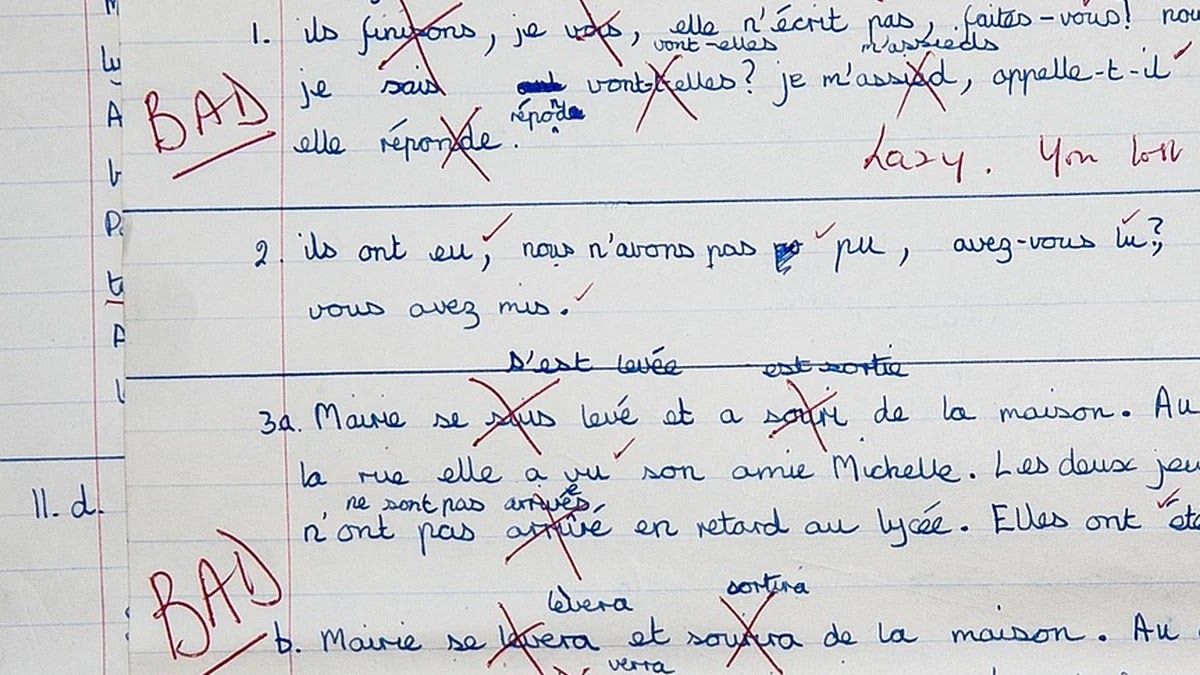 1. ils finissons, je vais, elle n'écrit pas, faites-vous! nou
vont-elles m'assieds
je sais vont-t-elles? je m'assied, appelle-t-il
BAD
répond
elle réponde.
Lazy. You lost
2. ils ont eu, nous n'avons pas pu, avez-vous lu?,
vous avez mis.
s'est levée est sortie
3a. Mairie se suis levé et a souri de la maison. Au
la rue elle a vu son amie Michelle. Les deux jeu
ne sont pas arrivées
n'ont pas arrivé en retard au lycée. Elles ont été
11. d.
BAD
lèvera sortira
b. Mairie se levera et sourira de la maison. Au
verra